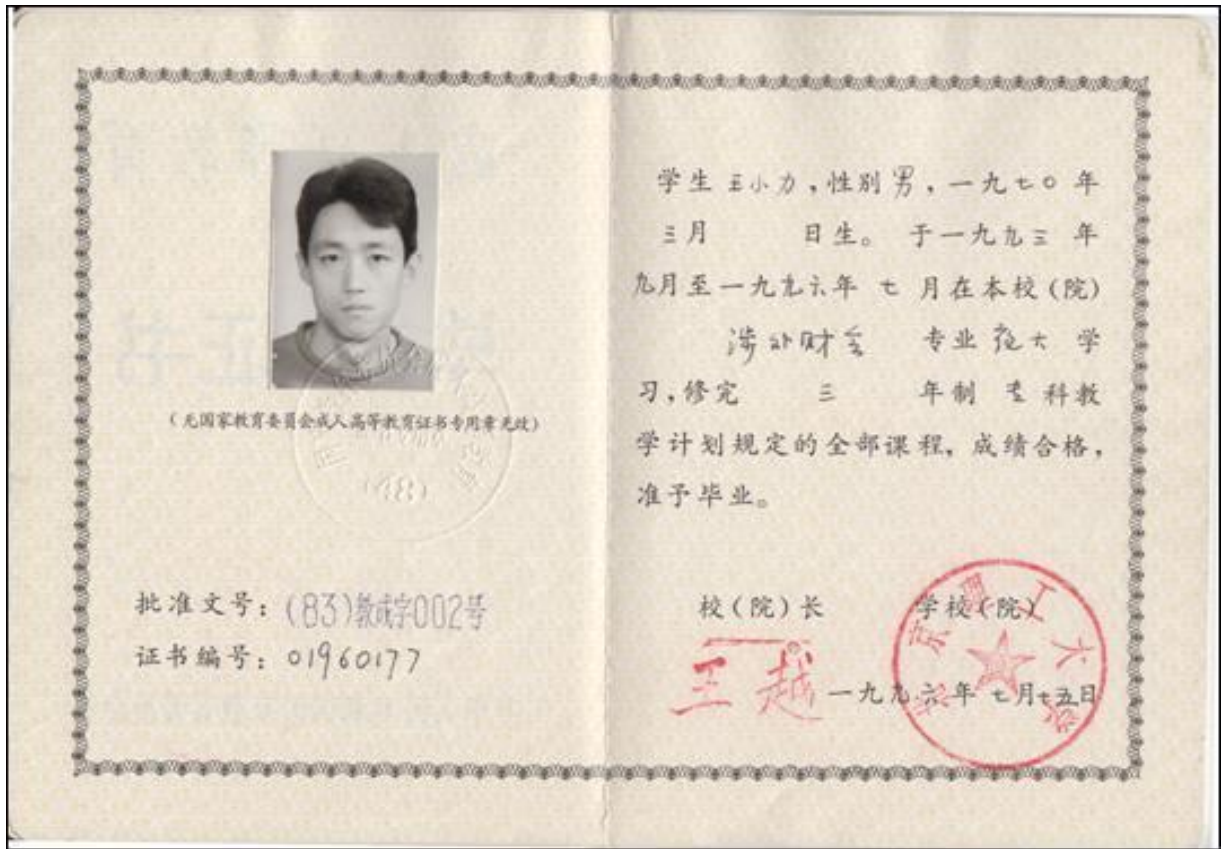 (无国家教育委员会成人高等教育证书专用章无效)
(48)
批准文号：(83)教成字002号
证书编号：01960177
学生 王小力，性别 男，一九七〇年
三月 日生。于一九九三 年
九月至一九九六年 七 月在本校(院)
涉外财会 专业 夜大 学
习，修完 三 年制 专 科教
学计划规定的全部课程，成绩合格，
准予毕业。
校(院)长 学校(院)
王越
北京理工大学
一九九六年 七月十五日